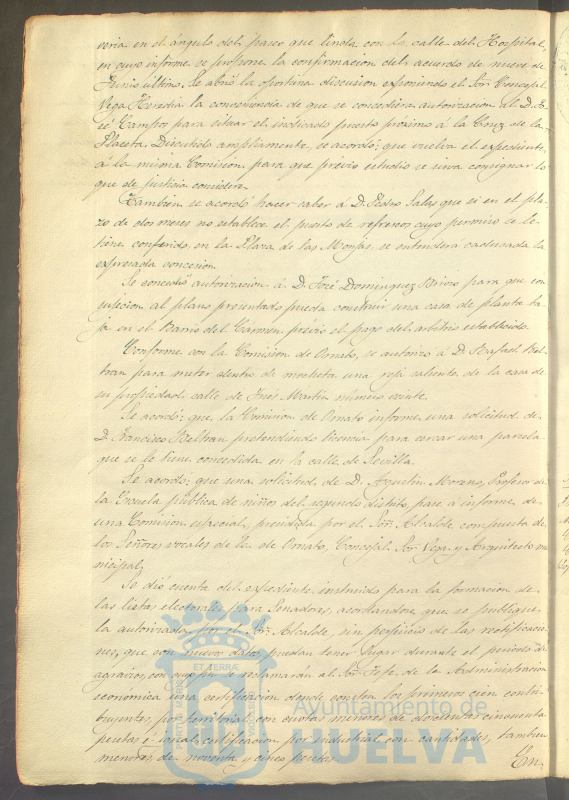 veria en el ángulo del paseo que linda con la calle del Hospital,
en cuyo informe se propone la confirmacion del acuerdo de nueve de
Junio último. Se abrió la oportuna discusion exponiendo el Sor. Concejal
Vega Heredia la conveniencia de que se concediera autorizacion al D. Jo-
sé Campos para situar el indicado puesto próximo á la Cruz de la
Placeta. Discutido ampliamente, se acordó: que vuelva el expediente
á la misma Comision para que prévio estudio se sirva consignar lo
que de justicia considere.
Tambien se acordó hacer saber á D. Pedro Salas que si en el pla-
zo de dos meses no establece el puesto de refrescos cuyo permiso se le
tiene conferido en la Plaza de las Monjas, se entenderá caducada la
expresada concesion.
Se concedió autorizacion á D. José Dominguez para que con
sujecion al plano presentado pueda construir una casa de planta ba-
ja en el Barrio del Carmen, prévio el pago del arbitrio establecido.
Conforme con la Comision de Ornato, se autorizó á D. Rafael Bel-
tran para meter dentro de mocheta una reja saliente de la casa de
su propiedad, calle de Inés Martin número veinte.
Se acordó: que la Comision de Ornato informe una solicitud de
D. Francisco Beltran pretendiendo licencia para cercar una parcela
que se le tiene concedida en la calle de Sevilla.
Se acordó: que una solicitud de D. Agustin Moreno, Profesor de
la Escuela pública de niños del segundo distrito, pase á informe de
una Comision especial, presidida por el Sor. Alcalde compuesta de
los Señores vocales de la de Ornato, Concejal Sor. Vega y Arquitecto mu-
nicipal.
Se dió cuenta del expediente instruido para la formacion de
las listas electorales para Senadores, acordandose que se publique
la autorizada por el Sor. Alcalde, sin perjuicio de las rectificacio-
nes, que con nuevos datos, puedan tener lugar durante el periodo de
agravios, con cuyo fin se reclamarán al Sor. Jefe de la Administracion
económica una certificacion donde consten los primeros cien contri-
buyentes, por territorial, con cuotas menores de doscientas cincuenta
pesetas é igual certificacion por industrial con cantidades, tambien
menores, de noventa y cinco pesetas.
En
ET TERRAE
Ayuntamiento de
HUELVA